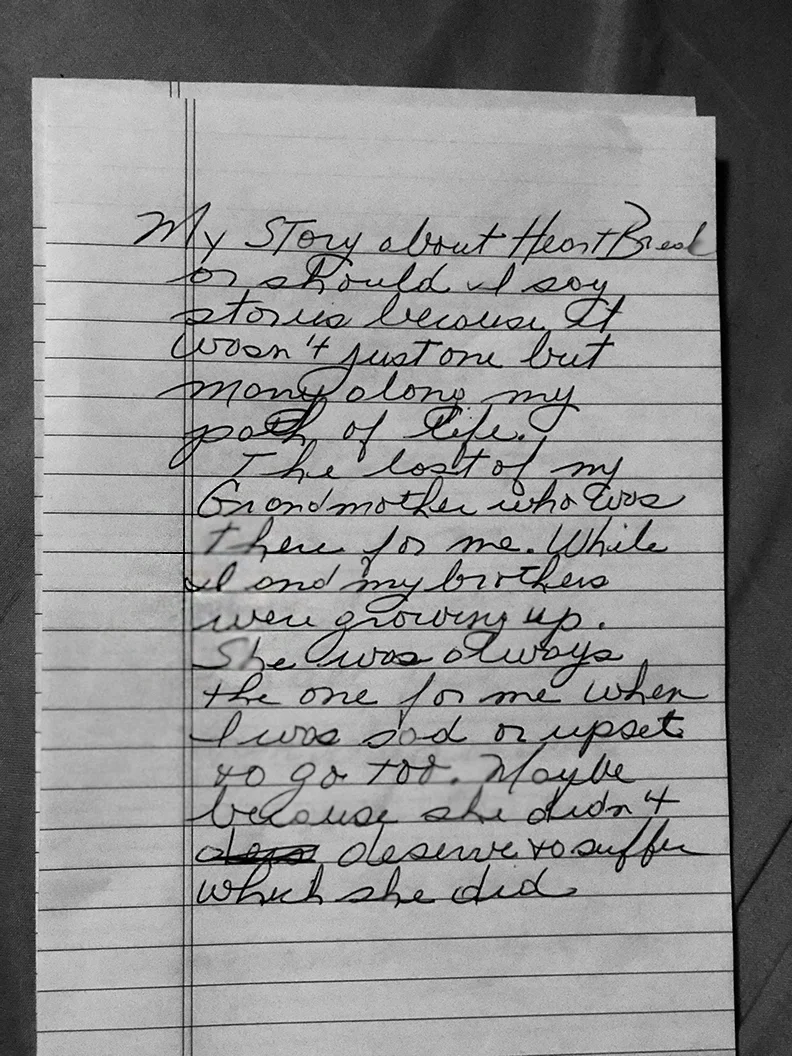 My Story about HeartBreak
or should I say
stories because it
wasn't just one but
many along my
path of life.
The lost of my
Grandmother who was
there for me. While
I and my brothers
were growing up.
She was always
the one for me when
I was sad or upset
to go too. Maybe
because she didn't
deserve to suffer
which she did